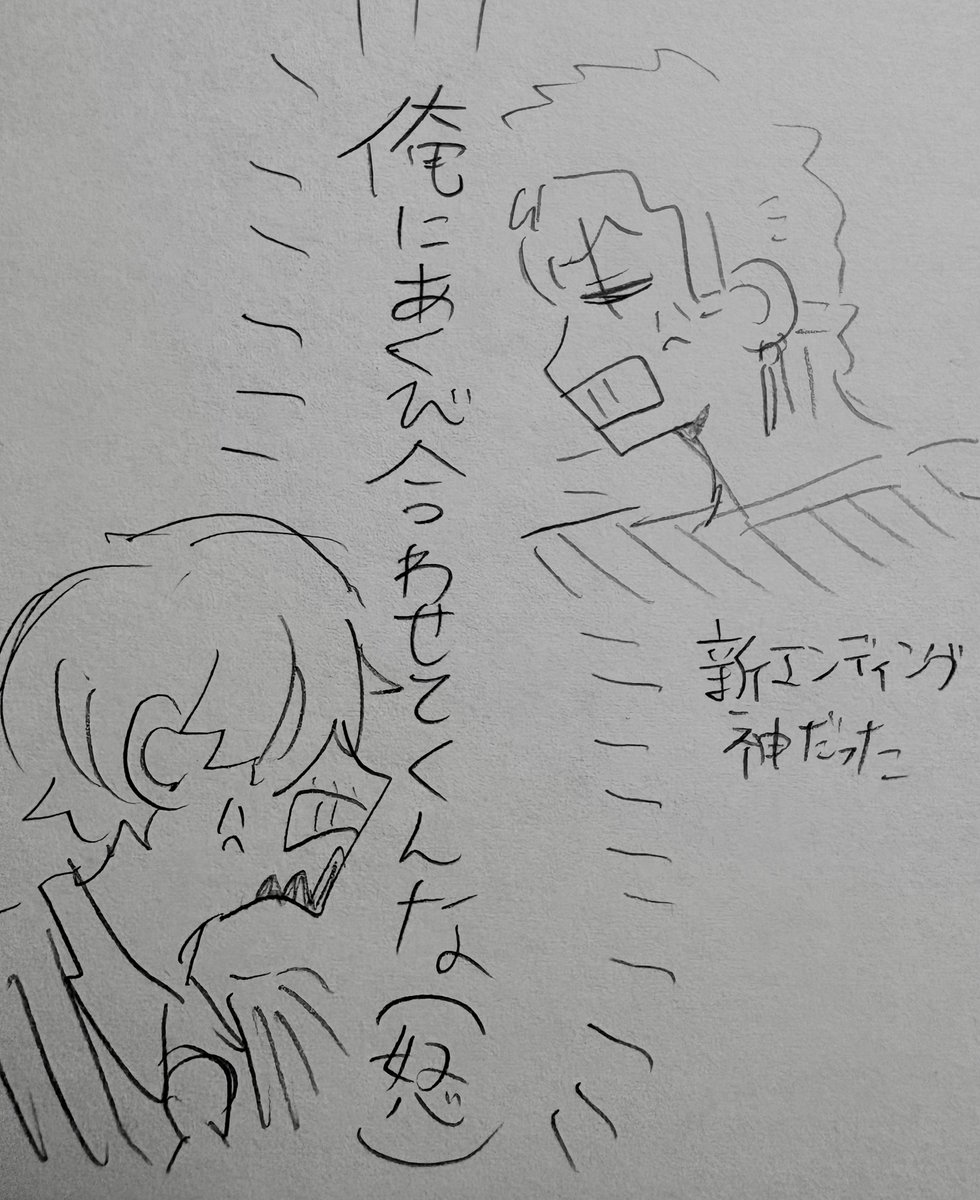 俺にあくび合わせてくんな(怒)
新エンディング
神だった